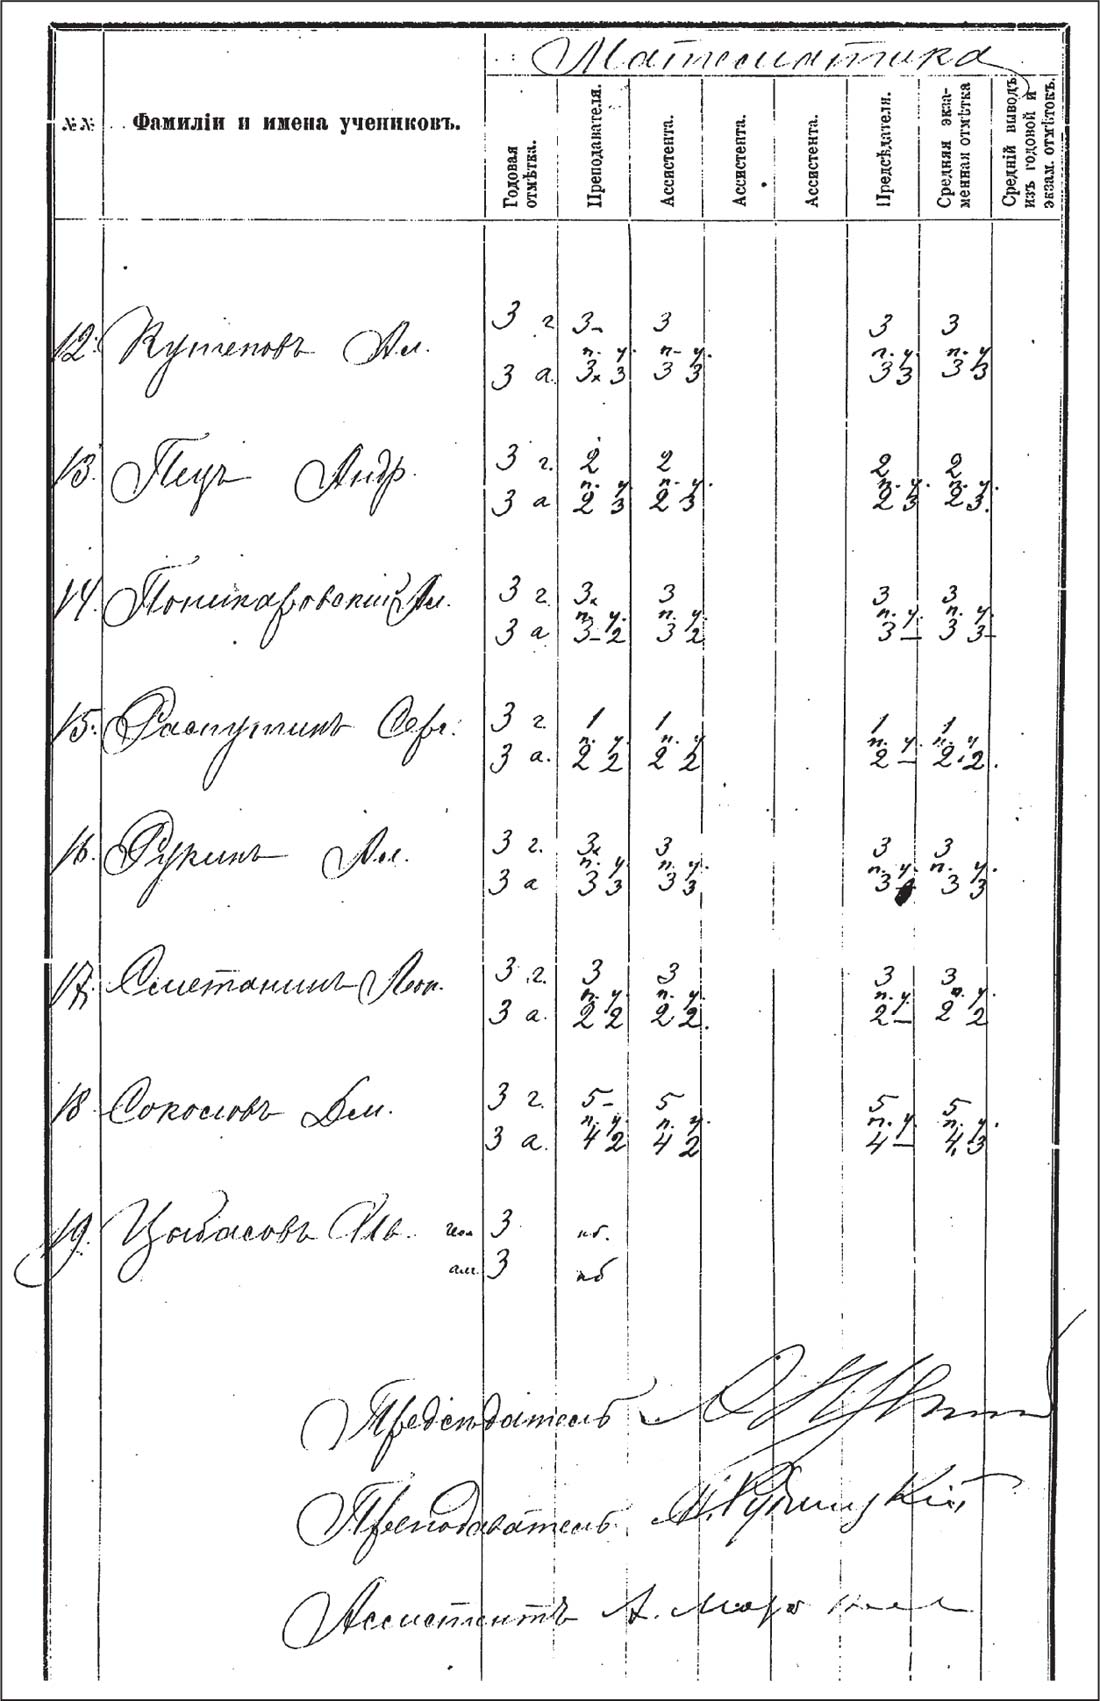 Математика
№№ Фамиліи и имена учениковъ. Годовая отмѣтка. Преподавателя. Ассистента. Ассистента. Ассистента. Предсѣдателя. Средняя экзаменная отмѣтка Средній выводъ изъ годовой и экзам. отмѣтокъ.
3 г 3- 3 3 3
12. Кутеповъ Ал. п. у. п- у. п. у. п. у
3 а. 3 3 3 3 3 3 3 3
3 г. 2 2 2 2
13. Пецъ Андр. п. у п. у. п. у. п. у.
3 а 2 3 2 3 2 3 2 3.
3 г. 3 3 3 3
14. Поликаровский Ал. п. у. п. у. п. у. п. у.
3 а 3- 2 3 2 3 - 3 3-
3 г. 1 1 1 1
15. Распутинъ Серг. п. у. п. у п. у. п. у
3 а. 2 2 2 2 2 - 2 2.
3 г. 3 3 3 3
16. Рукинъ Ал. п. у п. у. п. у. п. у.
3 а 3 3 3 3 3 3 3
3 г. 3 3 3 3
17. Сметанинъ Леон. п. у. п. у. п. у. п. у.
3 а. 2 2 2 2. 2 - 2 2
3 г. 5- 5 5 5
18 Соколовъ Дм. п. у п. у п. у. п. у.
3 а. 4 2 4 2 4 - 4 3
19. Ив. геом 3 нб.
алг. 3 нб
Предсѣдатель
Преподаватель
Ассистентъ А.